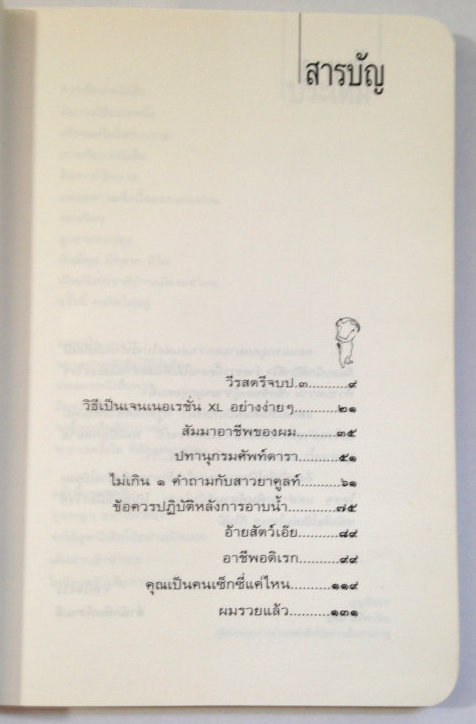 สารบัญ
วีรสตรีจบป.๓..........๙
วิธีเป็นเจนเนอเรชั่น XL อย่างง่ายๆ..........๒๑
สัมมาอาชีพของผม..........๓๕
ปทานุกรมศัพท์ดารา..........๕๑
ไม่เกิน ๑ คำถามกับสาวยาคูลท์..........๖๑
ข้อควรปฏิบัติหลังการอาบน้ำ..........๗๕
อ้ายสัตว์เอ๊ย..........๘๙
อาชีพอดิเรก..........๙๙
คุณเป็นคนเซ็กซี่แค่ไหน..........๑๑๙
ผมรวยแล้ว..........๑๓๑